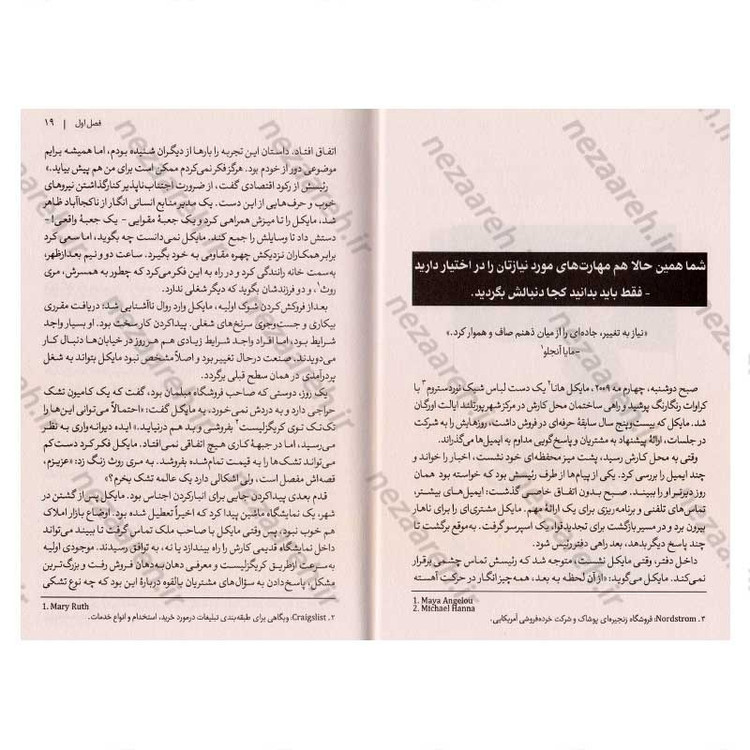 شما همین حالا هم مهارت‌های مورد نیازتان را در اختیار دارید
- فقط باید بدانید کجا دنبالش بگردید.
«نیاز به تغییر، جاده‌ای را از میان ذهنم صاف و هموار کرد.»
-مایا آنجلو¹
صبح دوشنبه، چهارم مه ۲۰۰۹، مایکل هانا² یک دست لباس شیک نوردستروم³ با
کراوات رنگارنگ پوشید و راهی ساختمان محل کارش در مرکز شهر پورتلند ایالت اورگان
شد. مایکل که بیست‌وپنج سال سابقهٔ حرفه‌ای در فروش داشت، روزهایش را به شرکت
در جلسات، ارائهٔ پیشنهاد به مشتریان و پاسخ‌گویی مداوم به ایمیل‌ها می‌گذراند.
وقتی به محل کارش رسید، پشت میز محفظه‌ای خود نشست، اخبار را خواند و
چند ایمیل را بررسی کرد. یکی از پیام‌ها از طرف رئیسش بود که خواسته بود همان
روز دیرتر او را ببیند. صبح بدون اتفاق خاصی گذشت: ایمیل‌های بیشتر،
تماس‌های تلفنی و برنامه‌ریزی برای یک ارائهٔ مهم. مایکل مشتری‌ای را برای ناهار
بیرون برد و در مسیر بازگشت برای تجدیدقوا، یک اسپرسو گرفت. به‌موقع برگشت تا
چند پاسخ دیگر بدهد، بعد راهی دفتر رئیس شود.
داخل دفتر، وقتی مایکل نشست، متوجه شد که رئیسش تماس چشمی برقرار
نمی‌کند. مایکل می‌گوید: «از آن لحظه به بعد، همه‌چیز انگار در حرکت آهسته
1. Maya Angelou
2. Michael Hanna
۳. Nordstrom: فروشگاه زنجیره‌ای پوشاک و شرکت خرده‌فروشی آمریکایی.
فصل اول | ۱۹
اتفاق افتاد. داستان این تجربه را بارها از دیگران شنیده بودم، اما همیشه برایم
موضوعی دور از خودم بود. هرگز فکر نمی‌کردم ممکن است برای من هم پیش بیاید.»
رئیسش از رکود اقتصادی گفت، از ضرورت اجتناب‌ناپذیر کنارگذاشتن نیروهای
خوب و حرف‌هایی از این دست. یک مدیر منابع انسانی انگار از ناکجاآباد ظاهر
شد، مایکل را تا میزش همراهی کرد و یک جعبهٔ مقوایی - یک جعبهٔ واقعی! -
دستش داد تا وسایلش را جمع کند. مایکل نمی‌دانست چه بگوید، اما سعی کرد
برابر همکاران نزدیکش چهره مقاومی به خود بگیرد. ساعت دو و نیم بعدازظهر،
به‌سمت خانه رانندگی کرد و در راه به این فکر می‌کرد که چطور به همسرش، مری
روث¹، و دو فرزندشان بگوید که دیگر شغلی ندارد.
بعد از فروکش کردن شوک اولیه، مایکل وارد روال ناآشنایی شد: دریافت مقرری
بیکاری و جست‌وجوی سرنخ‌های شغلی. پیداکردن کار سخت بود. او بسیار واجد
شرایط بود، اما افراد واجد شرایط زیادی هم هر روز در خیابان‌ها دنبال کار
می‌دویدند. صنعت درحال تغییر بود و اصلاً مشخص نبود مایکل بتواند به شغل
پردرآمدی در همان سطح قبلی برگردد.
یک روز، دوستی که صاحب فروشگاه مبلمان بود، گفت که یک کامیون تشک
حراجی دارد و به دردش نمی‌خورد، به مایکل گفت: «احتمالاً می‌توانی این‌ها را
تک‌تک توی کریگزلیست² بفروشی و بد هم درنیاید.» ایده دیوانه‌واری به نظر
می‌رسید، اما در جبههٔ کاری هیچ اتفاقی نمی‌افتاد. مایکل فکر کرد دست کم
می‌تواند تشک‌ها را به قیمت تمام‌شده بفروشد. به مری روث زنگ زد: «عزیزم،
قصه‌اش مفصل است، ولی اشکالی دارد یک عالمه تشک بخرم؟»
قدم بعدی پیداکردن جایی برای انبارکردن اجناس بود. مایکل پس از گشتن در
شهر، یک نمایشگاه ماشین پیدا کرد که اخیراً تعطیل شده بود. اوضاع بازار املاک
هم خوب نبود، پس وقتی مایکل با صاحب ملک تماس گرفت تا ببیند می‌تواند
داخل نمایشگاه قدیمی کارش را راه بیندازد یا نه، به توافق رسیدند. موجودی اولیه
به‌سرعت ازطریق کریگزلیست و معرفی دهان‌به‌دهان فروش رفت و بزرگ‌ترین
مشکل، پاسخ‌دادن به سؤال‌های مشتریان بالقوه دربارهٔ این بود که چه نوع تشکی
1. Mary Ruth
۲. Craigslist: وبگاهی برای طبقه‌بندی تبلیغات درمورد خرید، استخدام و انواع خدمات.
nezaareh.ir